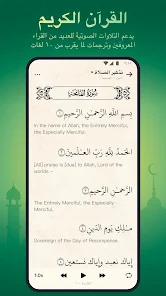 القرآن الكريم
يدعم التلاوات الصوتية للعديد من القراء
المعروفين وترجمات لما يقرب من ١٠ لغات
تذكير الصلاة
سُورَةُ الفَاتِحَة
بِسْمِ اللَّهِ الرَّحْمَٰنِ الرَّحِيمِ ١
In the name of Allah, the Entirely Merciful, the Especially Merciful.
الْحَمْدُ لِلَّهِ رَبِّ الْعَالَمِينَ ٢
[All] praise is [due] to Allah, Lord of the worlds -
الرَّحْمَٰنِ الرَّحِيمِ ٣
The Entirely Merciful, the Especially Merciful,
مَالِكِ يَوْمِ الدِّينِ ٤
Sovereign of the Day of Recompense.
إِيَّاكَ نَعْبُدُ وَإِيَّاكَ نَسْتَعِينُ
1.0x